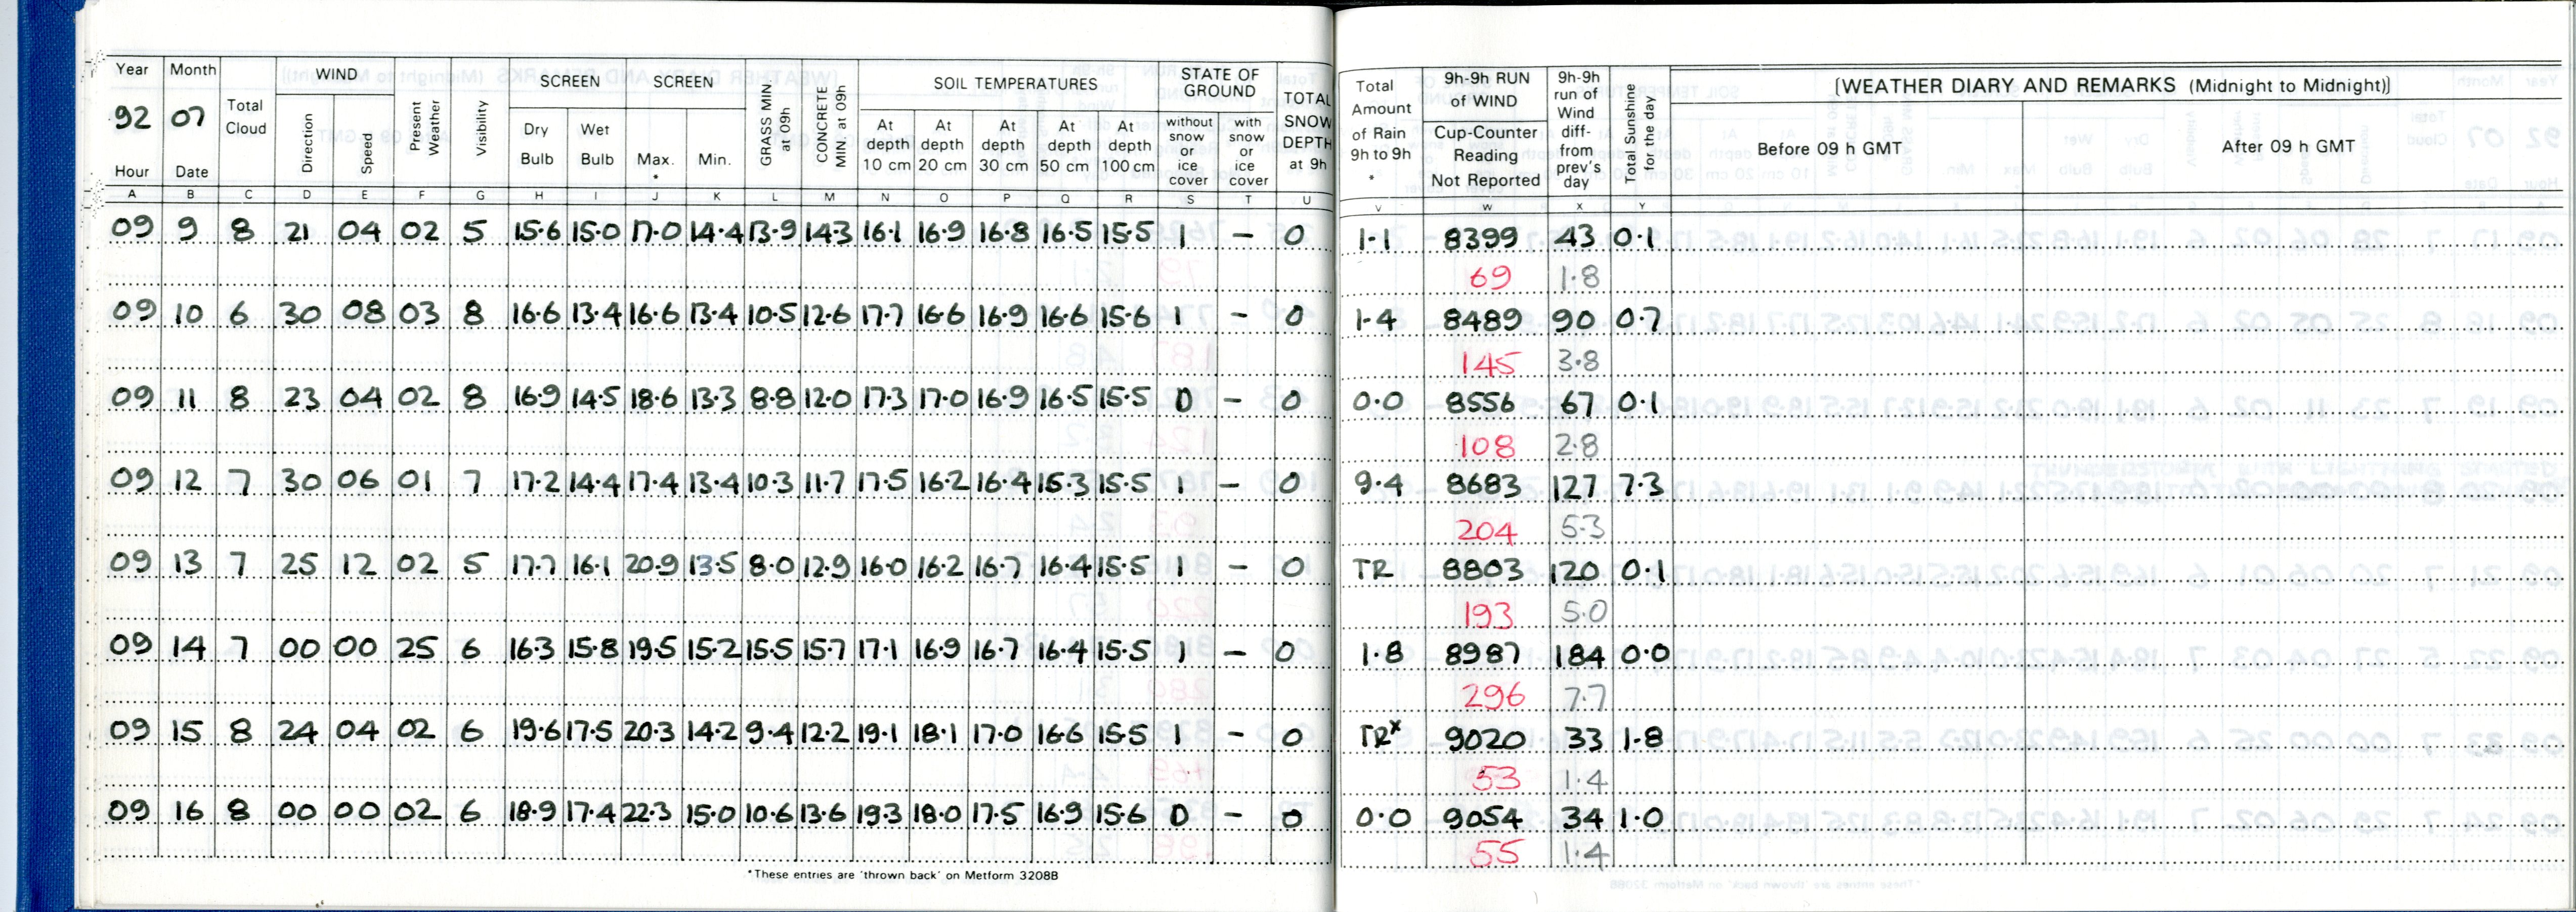 Year Month Total Cloud WIND Present Weather Visibility SCREEN SCREEN GRASS MIN at 09h CONCRETE MIN. at 09h SOIL TEMPERATURES STATE OF GROUND TOTAL SNOW DEPTH at 9h Total Amount of Rain 9h to 9h * 9h-9h RUN of WIND 9h-9h run of Wind diff- from prev's day Total Sunshine for the day (WEATHER DIARY AND REMARKS (Midnight to Midnight))
92 07 Direction Speed Dry Bulb Wet Bulb Max. * Min. At depth 10 cm At depth 20 cm At depth 30 cm At depth 50 cm At depth 100 cm without snow or ice cover with snow or ice cover Cup-Counter Reading Not Reported Before 09 h GMT After 09 h GMT
Hour Date
A B C D E F G H I J K L M N O P Q R S T U V W X Y
09 9 8 21 04 02 5 15.6 15.0 17.0 14.4 13.9 14.3 16.1 16.9 16.8 16.5 15.5 1 – 0 1.1 8399 43 0.1
69 1.8
09 10 6 30 08 03 8 16.6 13.4 16.6 13.4 10.5 12.6 17.7 16.6 16.9 16.6 15.6 1 – 0 1.4 8489 90 0.7
145 3.8
09 11 8 23 04 02 8 16.9 14.5 18.6 13.3 8.8 12.0 17.3 17.0 16.9 16.5 15.5 0 – 0 0.0 8556 67 0.1
108 2.8
09 12 7 30 06 01 7 17.2 14.4 17.4 13.4 10.3 11.7 17.5 16.2 16.4 15.3 15.5 1 – 0 9.4 8683 127 7.3
204 5.3
09 13 7 25 12 02 5 17.7 16.1 20.9 13.5 8.0 12.9 16.0 16.2 16.7 16.4 15.5 1 – 0 TR 8803 120 0.1
193 5.0
09 14 7 00 00 25 6 16.3 15.8 19.5 15.2 15.5 15.7 17.1 16.9 16.7 16.4 15.5 1 – 0 1.8 8987 184 0.0
296 7.7
09 15 8 24 04 02 6 19.6 17.5 20.3 14.2 9.4 12.2 19.1 18.1 17.0 16.6 15.5 1 – 0 TRx 9020 33 1.8
53 1.4
09 16 8 00 00 02 6 18.9 17.4 22.3 15.0 10.6 13.6 19.3 18.0 17.5 16.9 15.6 0 – 0 0.0 9054 34 1.0
55 1.4
*These entries are 'thrown back' on Metform 3208B